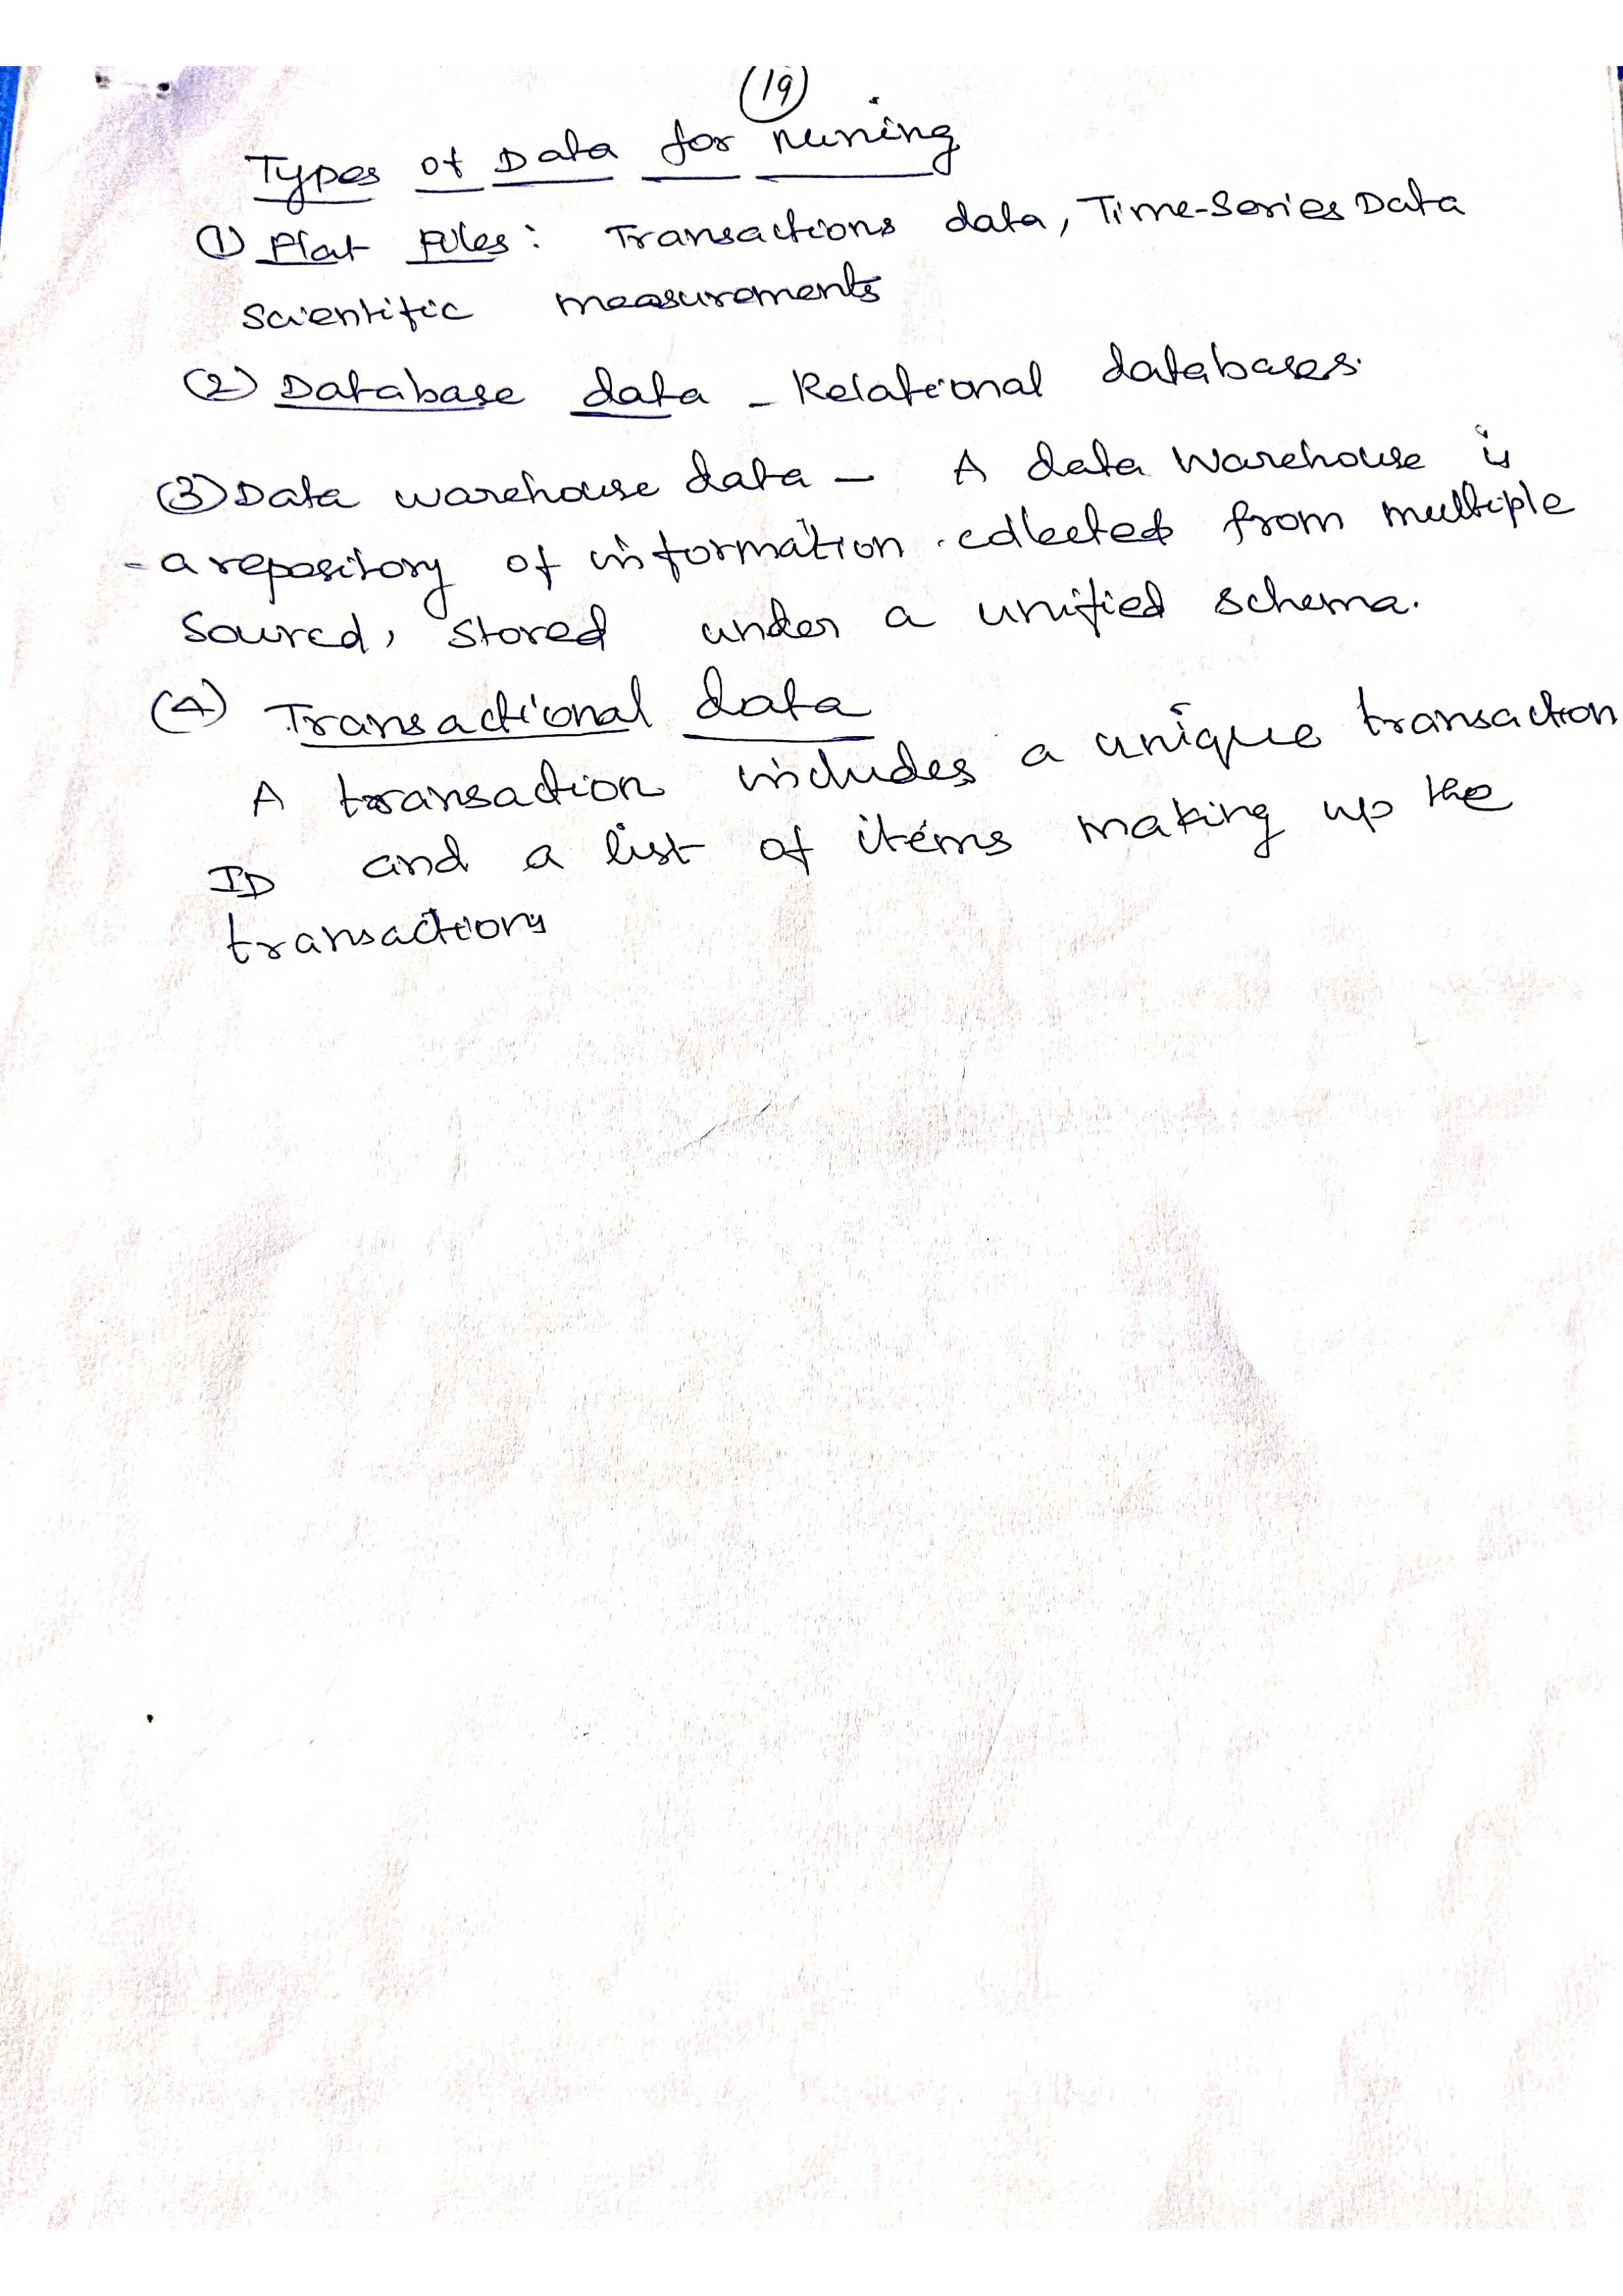 (19)
Types of Data for Mining
(1) Flat Files: Transactions data, Time-Series Data
Scientific measurements
(2) Database data - Relational databases.
(3) Data warehouse data - A data Warehouse is
- a repository of information collected from multiple
Sourcd, stored under a unified schema.
(4) Transactional data
A transaction includes a unique transaction
ID and a list of items making up the
transactions